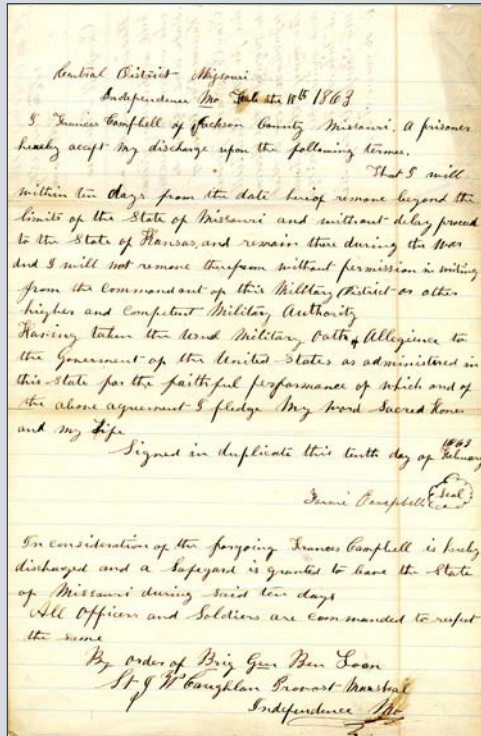 Central District Missouri
Independence Mo Feb the 10th 1863
I Frances Campbell of Jackson County Missouri. A prisoner
hereby accept my discharge upon the following termes.
That I will
within ten days from the date hereof remove beyond the
limits of the State of Missouri and without delay proceed
to the State of Kansas, and remain there during the war
And I will not remove therefrom without permission in writing
from the Commandant of this Military District or other
higher and competent Military Authority
Having taken the usual Military Oath of Allegience to
the Goverment of the United States as administered in
this State for the faithful performance of which and of
the above agreement I pledge My word Sacred Honor
and my Life
Signed in duplicate this tenth day of February 1863
Campbell Seal
In consideration of the forgoing Frances Campbell is hereby
discharged and a Safegard is granted to leave the State
of Missouri during said ten days
All Officers and Soldiers are commanded to respect
the same
By order of Brig Gen Ben Loan
Provost Marshal
Independence Mo